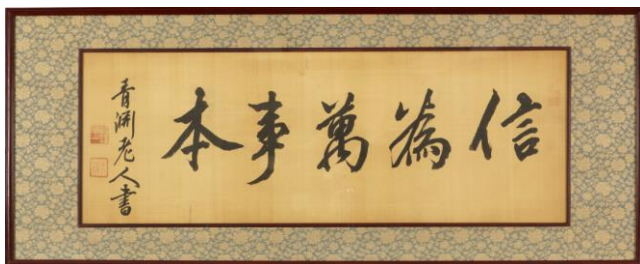 信為萬事本
青淵老人書